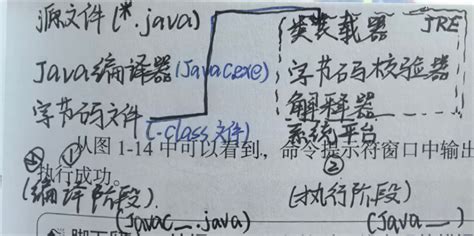 源文件(*.java)
类装载器 JRE
Java编译器(Javac.exe)
字节码校验器
字节码文件(.class文件)
解释器
系统平台
① ②
从图 1-14 中可以看到，命令提示符窗口中输出
执行成功。
(编译阶段) (执行阶段)
(Javac_.java) (Java _)